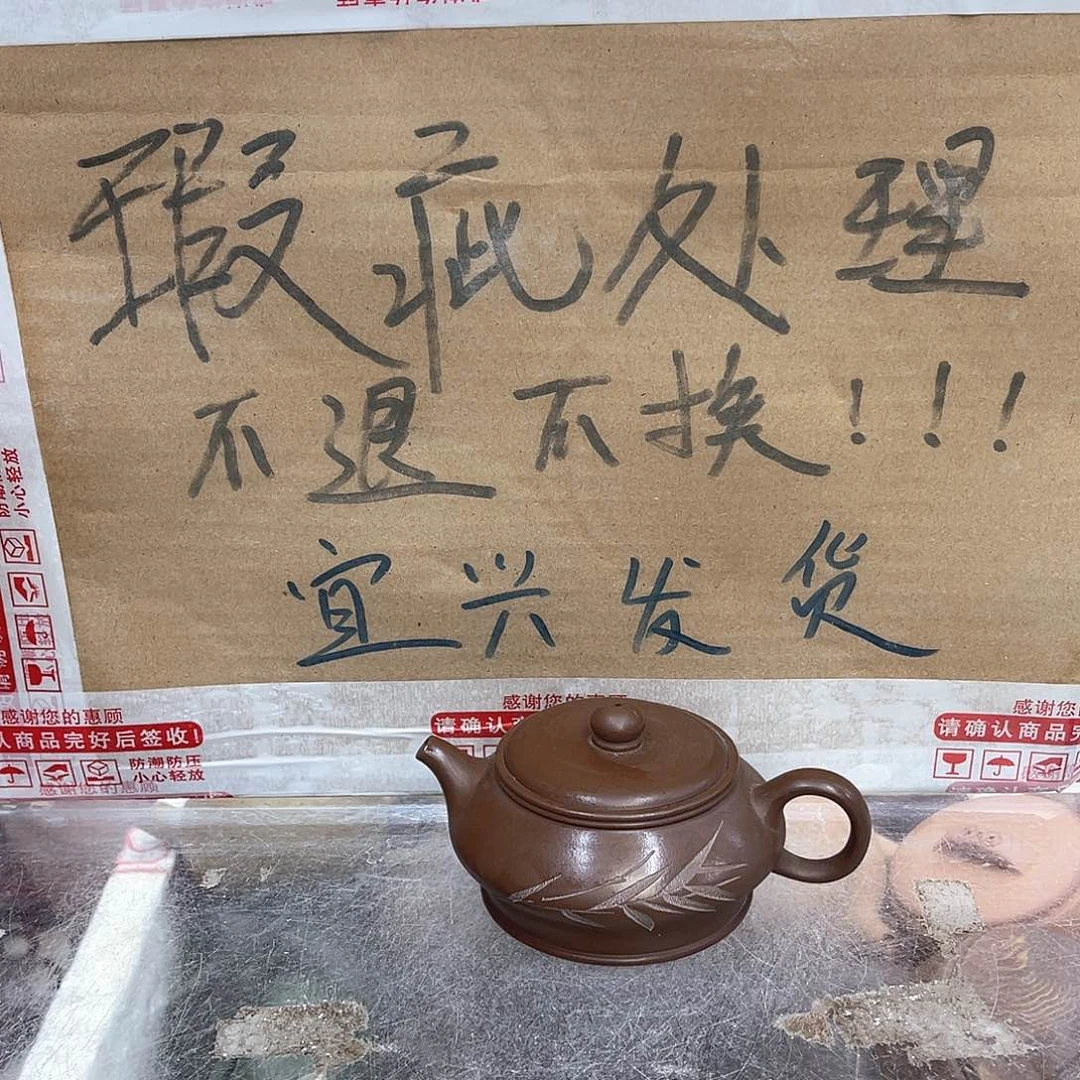 瑕疵处理
不退 不换!!!
宜兴发货
防潮防压
小心轻放
感谢您的惠顾
认商品完好后签收!
防潮防压
小心轻放
感谢您的惠顾
感谢您的惠顾
请确认商
感谢您
请确认商品完